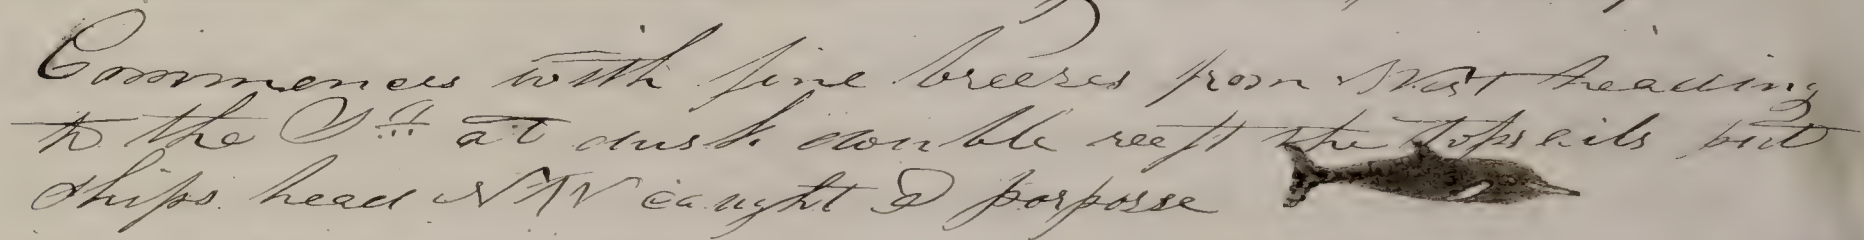 Commences with fine breezes from West heading
to the Sd at dusk double reeft the topsails put
ships head NW caught 2 porposse